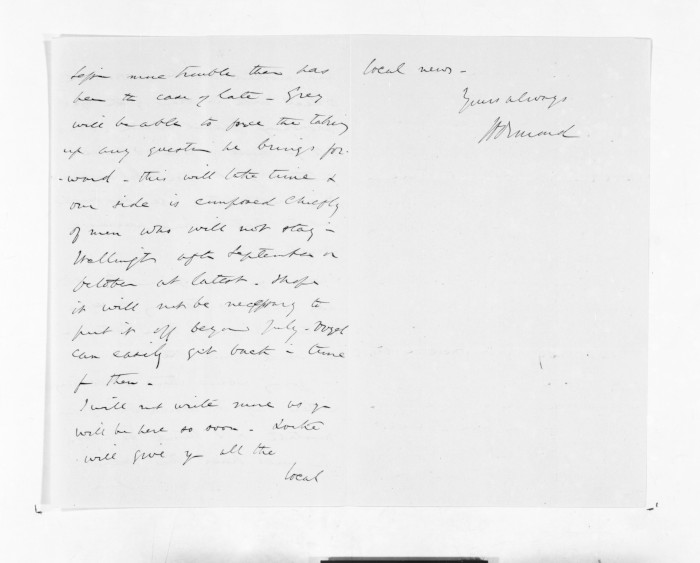 more trouble than has
been the case of late - Grey
will be able to force the taking
up any question he brings for-
-ward - this will take time &
our side is composed chiefly
of men who will not stay in
Wellington after September or
October at latest - I hope
it will not be necessary to
put it off beyond July - Vogel
can easily get back in time
for then -
I will not write more as you
will be here so soon - Locke
will give you all the
local
local news -
Yours always
JD Ormond